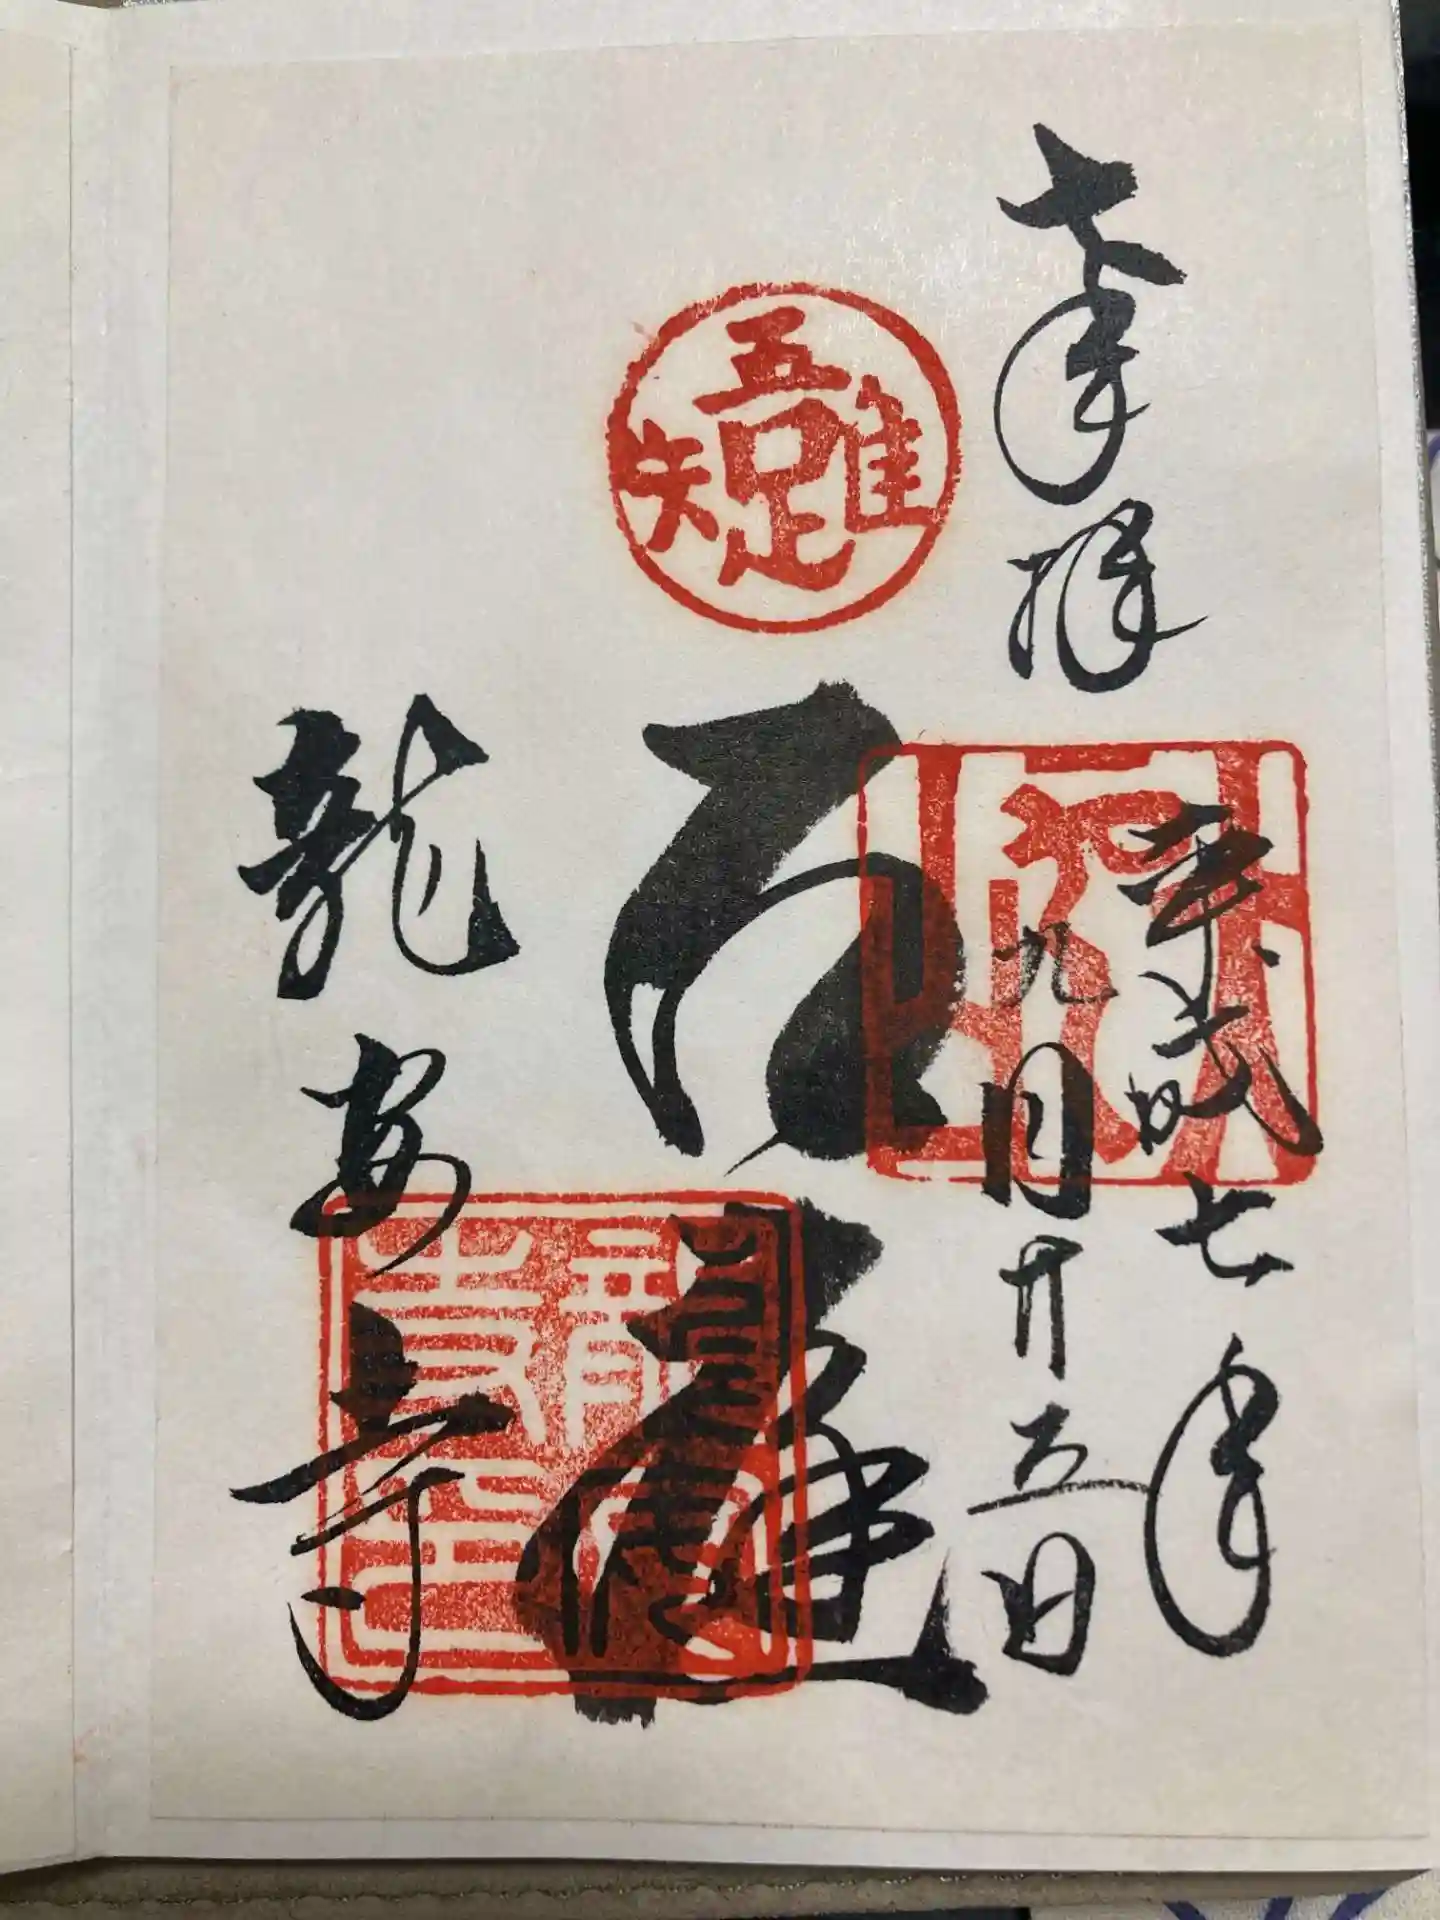 奉拝
吾唯足知
平成廿七年
九月廿五日
石庭
龍安寺